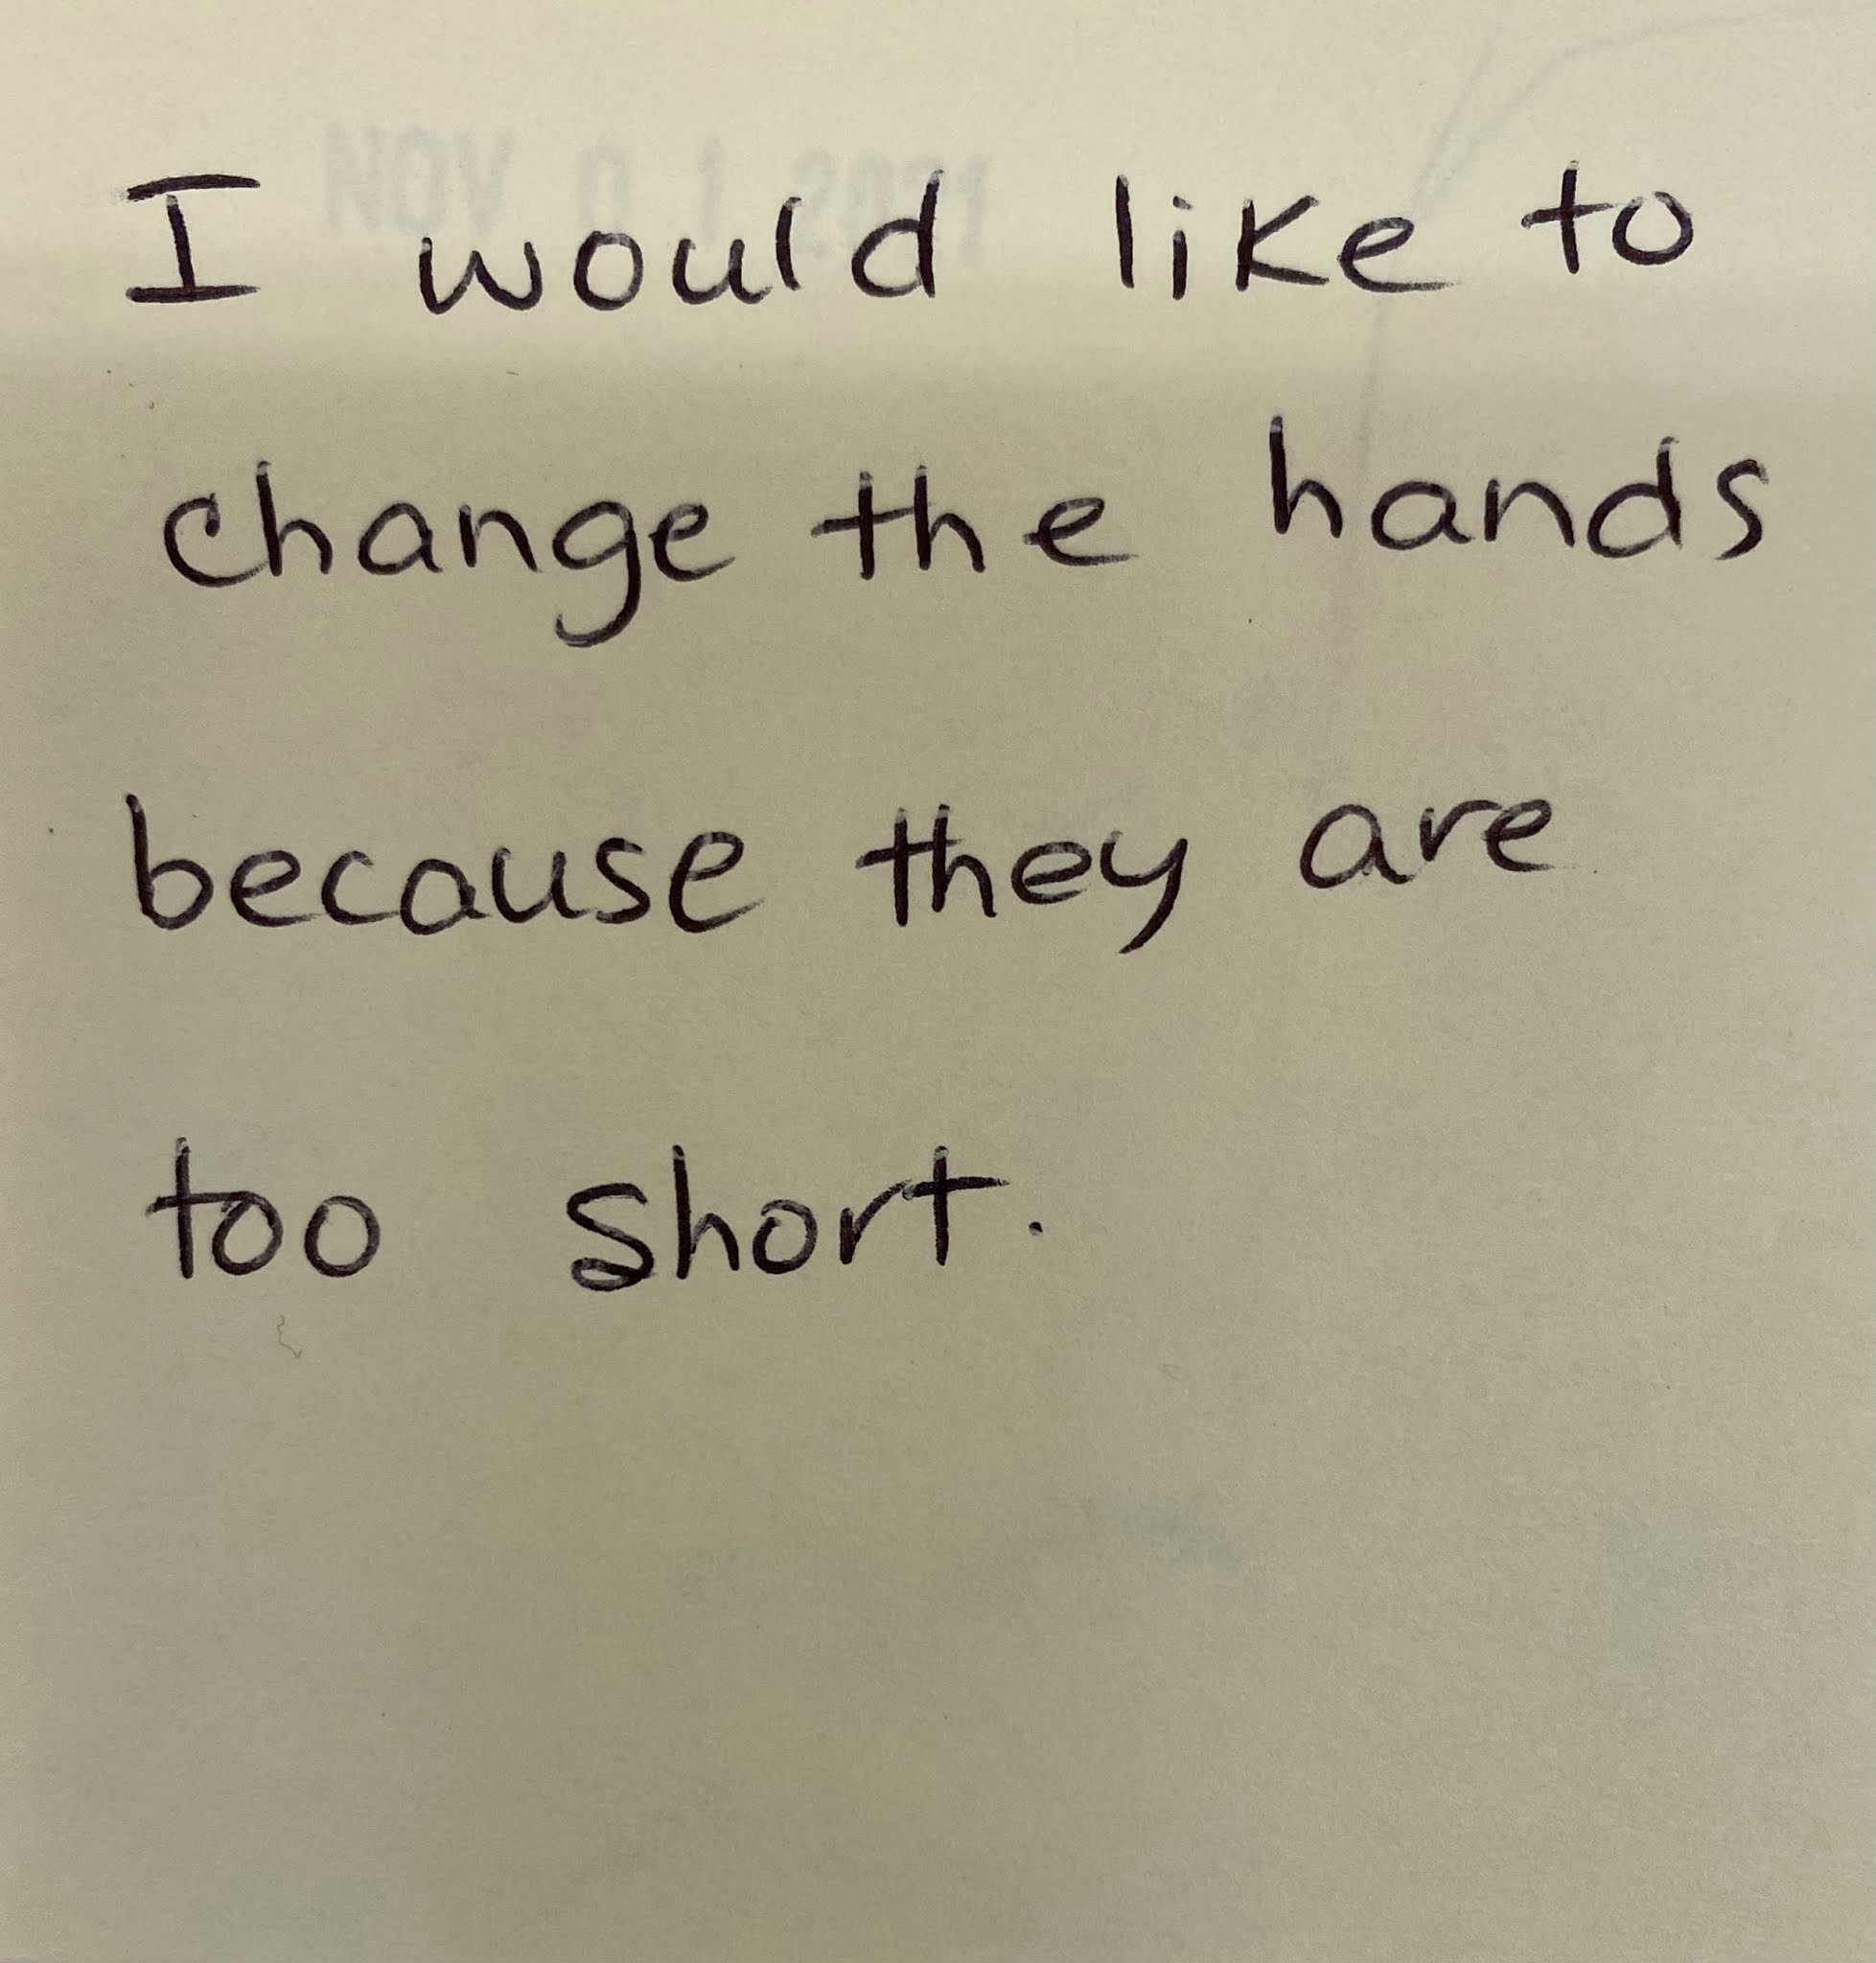 NOV 01 2021
I would like to
change the hands
because they are
too short.